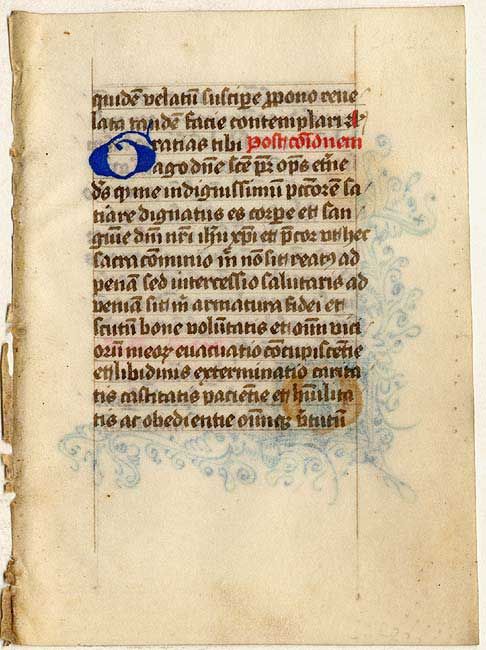 quidē velatū suscipe ꝓpono reue
lata tandē facie contemplari A
Gratias tibi Post cōīonem
ago dn̄e sc̄e pr̄ op̄s et̄ne
d̄s q̄ me indignissimū pctōrem sa
tiare dignatus es corpe et san
guine dn̄i nr̄i ihū xp̄i et p̄cor vt hec
sacra cōmunio m̄ non sit reatꝰ ad
penā sed intercessio salutaris ad
veniā sit m̄ armatura fidei et
scutū bone volūtatis et oīm vici
orū meoꝝ euacuatio cōcupiscētie
et libidinis exterminatio carita
tis castitatis paciētie et hūilita
tis ac obedientie om̄iūqꝫ v̄tutū